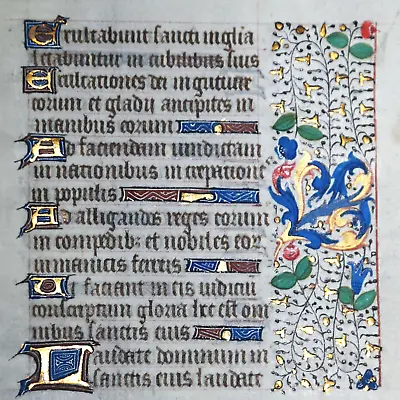 Exultabunt sancti in glia
letabuntur in cubilibus suis
Exultationes dei in guture
eorum et gladii ancipites in
manibus eorum
Ad faciendam vindictam
in nationibus increpationes
in populis
Ad alligandos reges eorum
in compedib: et nobiles eor
in manicis ferreis
Ut faciant in eis iudiciu
conscriptum gloria hec est om
nibus sanctis eius
Laudate dominum in
sanctis eius laudate